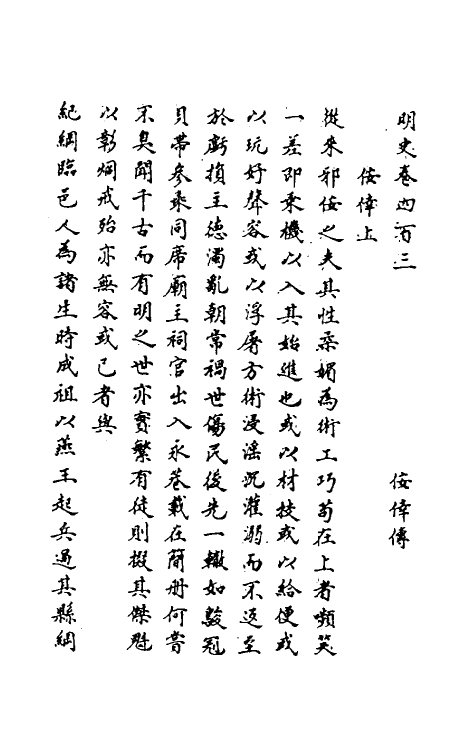 明史卷四百三
佞倖傳
佞倖上
從來邪佞之夫其性柔媚為術工巧苟在上者嚬笑
一差即乘機以入其始進也或以材技或以給便或
以玩好聲容或以浮屠方術浸滛沉灌溺而不返至
於虧損主德濁亂朝常禍世傷民後先一轍如鵔冠
貝帶參乘同席廟主祠官出入永巷載在簡册何嘗
不臭聞千古而有明之世亦實繁有徒則掇其傑魁
以彰炯戒殆亦無容或已者與
紀綱臨邑人為諸生時成祖以燕王起兵過其縣綱